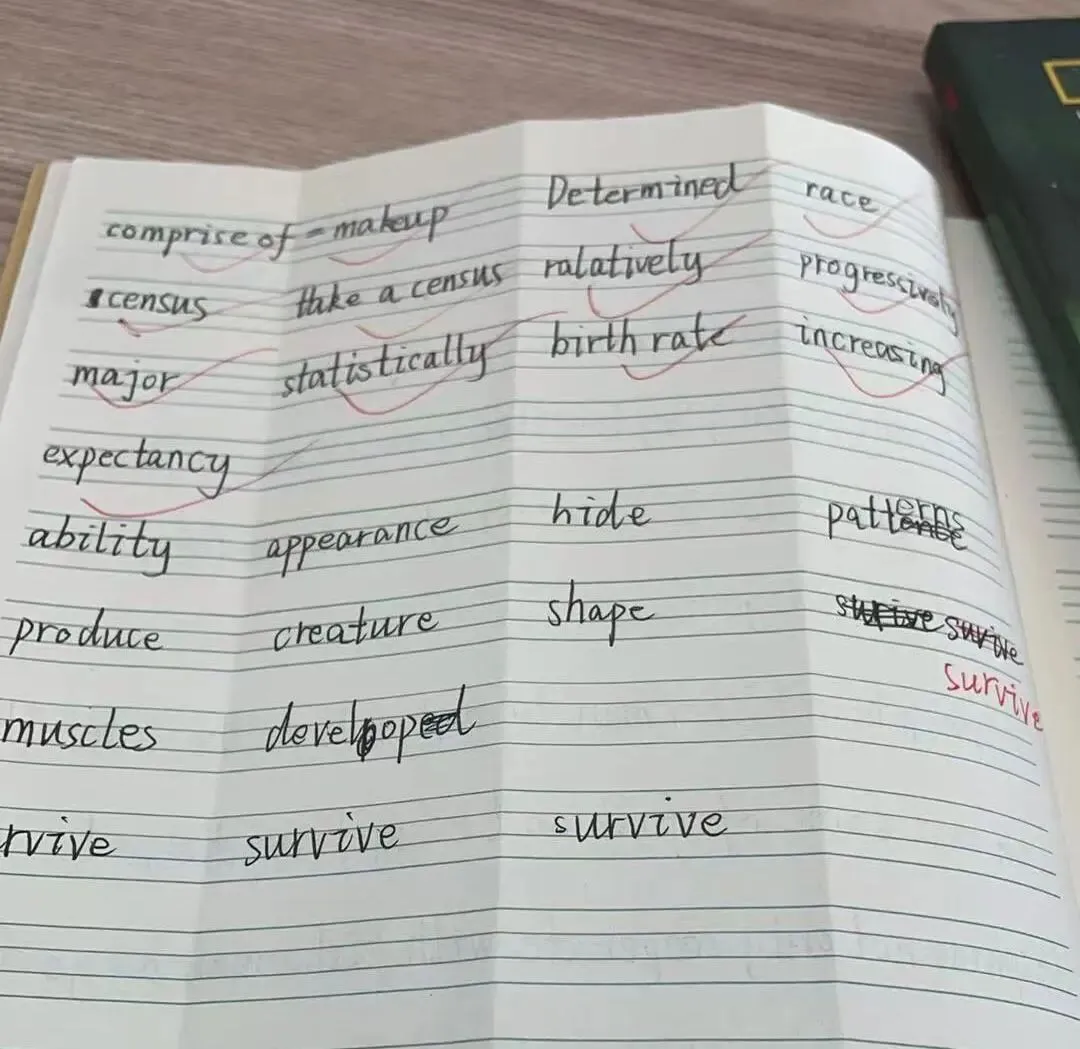 comprise of = makeup Determined race
census take a census ralatively progressively
major statistically birth rate increasing
expectancy
ability appearance hide patterns
produce creature shape surive
survive
muscles developed
rvive survive survive